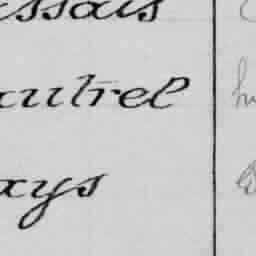 ssais
autrel
ays